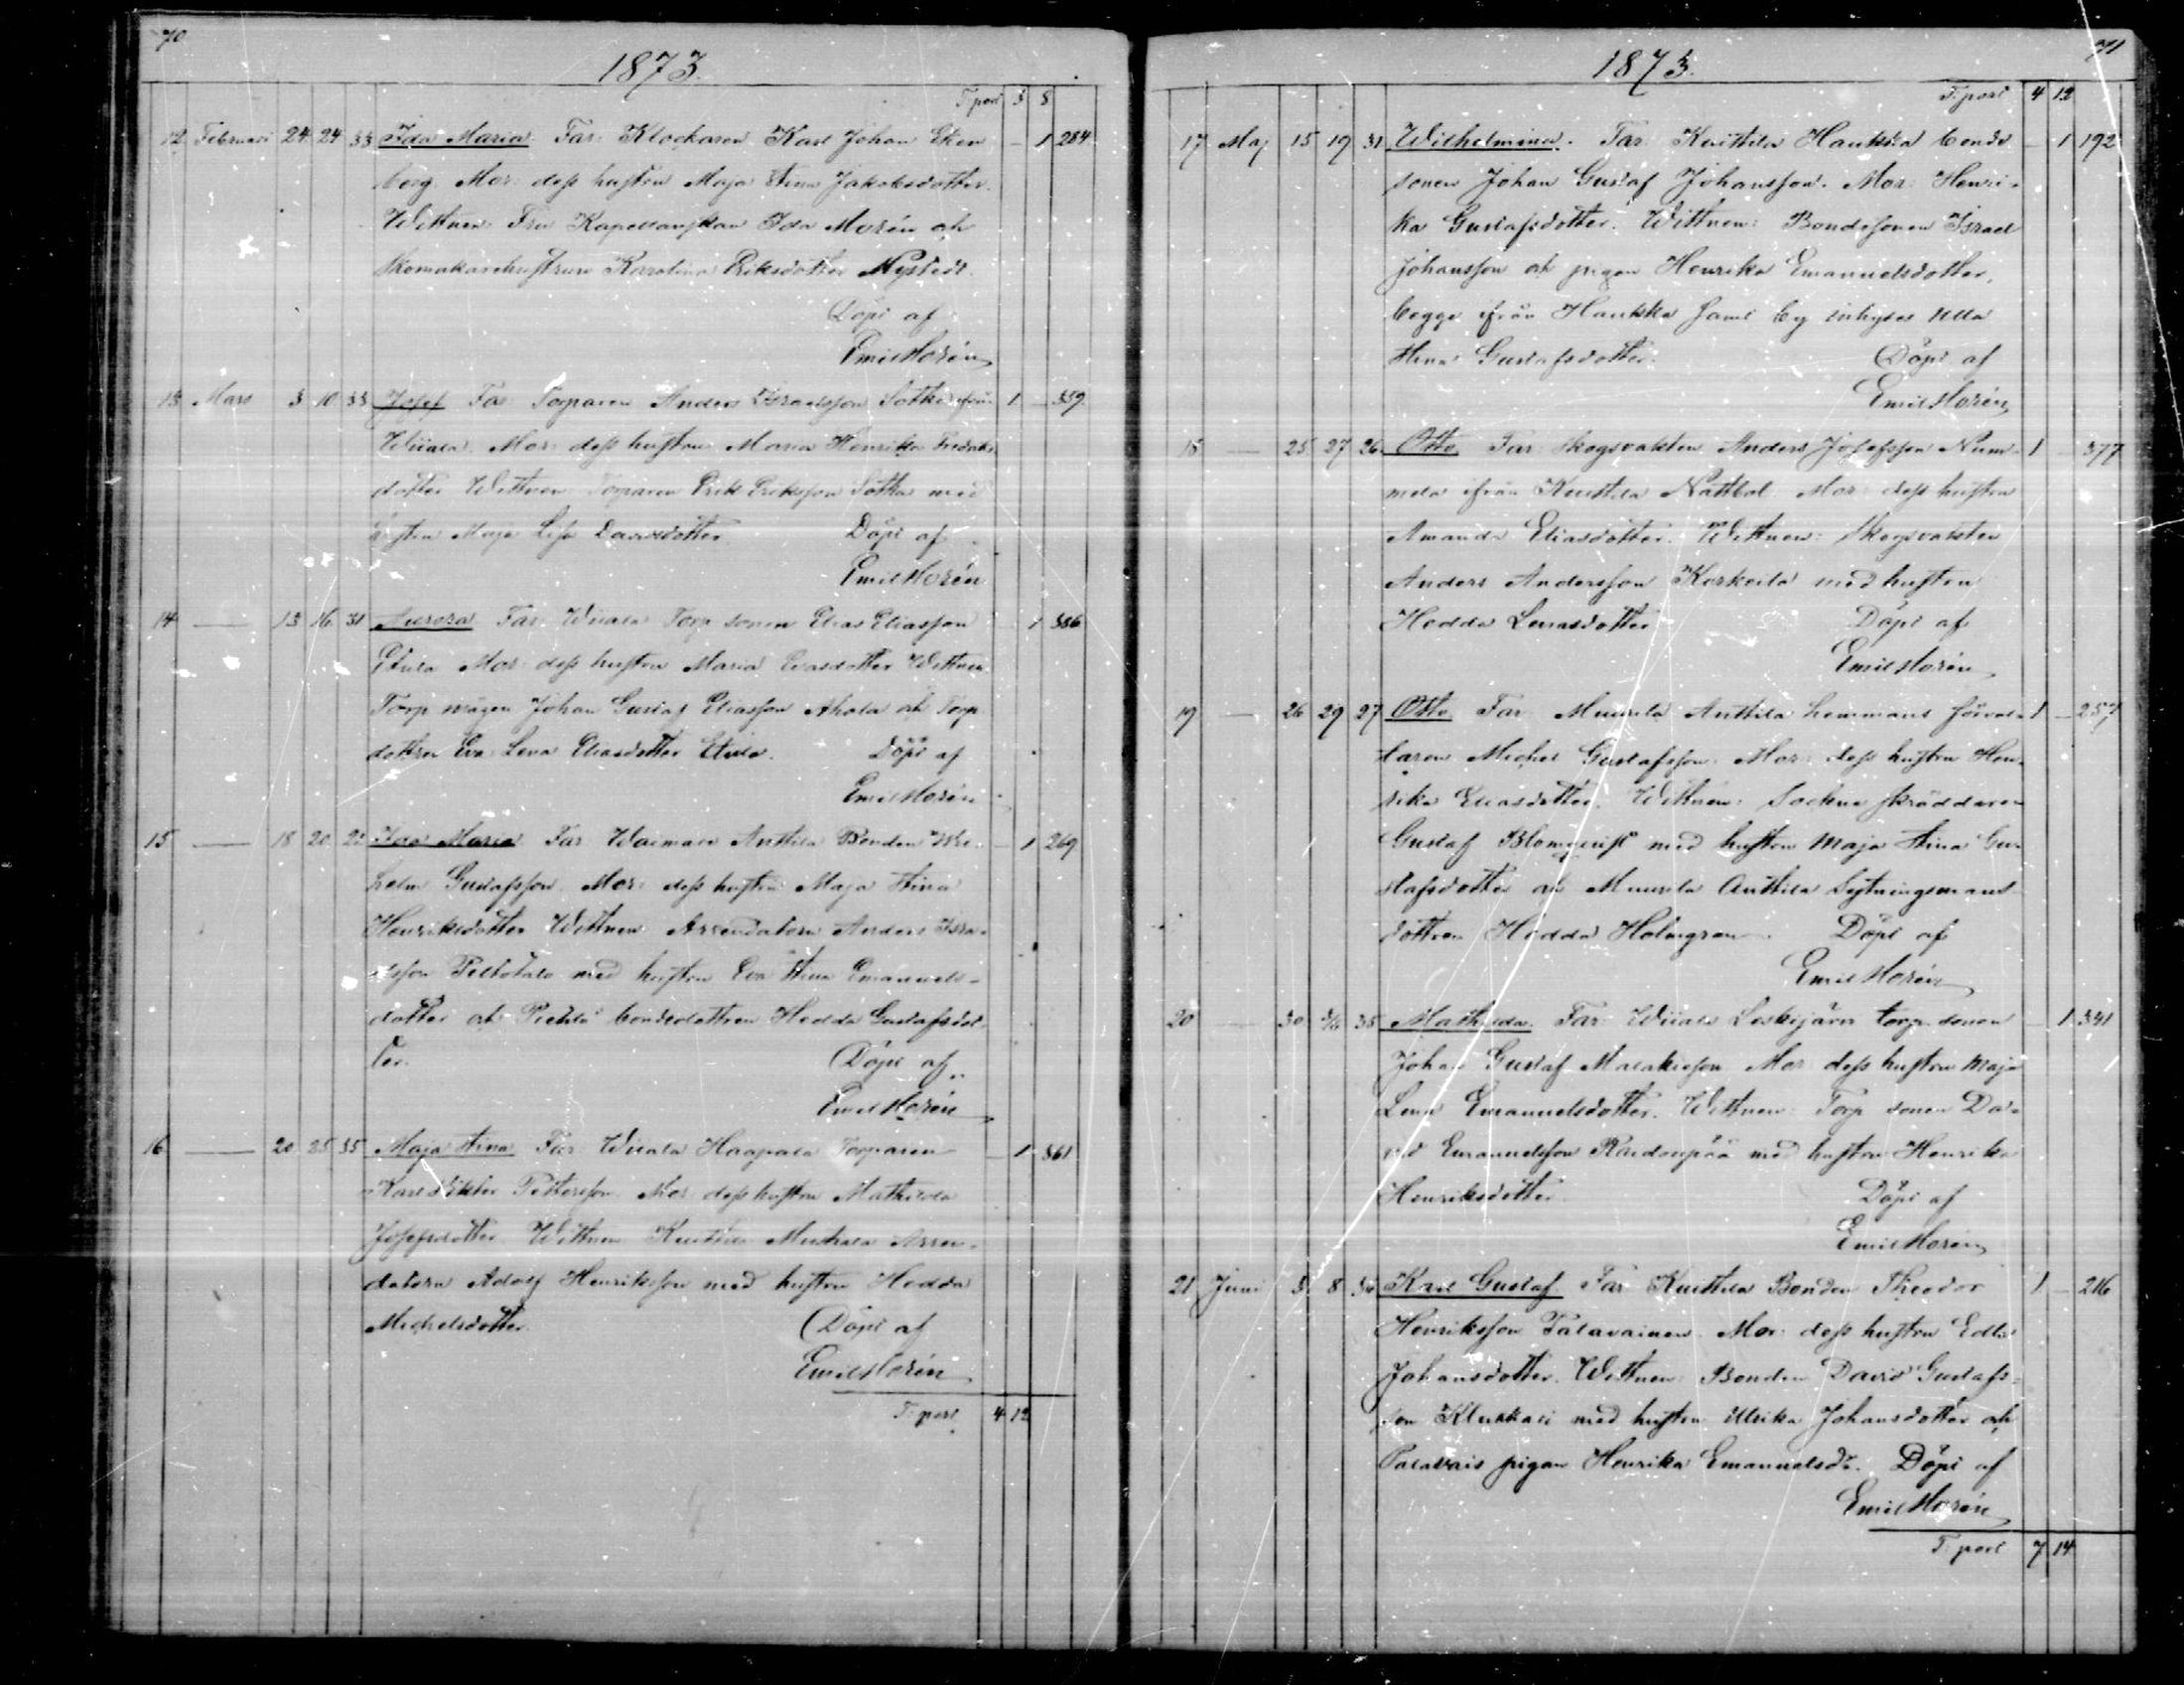 70
1873.
T. port 3 8
12 Februari 24 24 33 Ida Maria. Far: Klockaren Karl Johan Eken- – 1 284
berg. Mor: dess hustru Maja Stina Jakobsdotter.
Wittnen: Fru Kapellanskan Ida Morén och
Skomakarehustrun Karolina Eriksdotter Nystedt.
Döpt af
Emil Morén
13 Mars 3 10 33 Josef Far Torparen Anders Israelsson Sotka ifrån 1 – 359
Wiiala. Mor: dess hustru Maria Henrika
dotter Wittnen Torparen Erik Eriksson Sotka med
hustru Maja Lisa Davidsdotter. Döpt af
Emil Morén
14 — 13 16 31 Aurora Far: Wiiala Torp sonen Elias Eliasson – 1 386
Etula Mor: dess hustru Maria Evasdotter Wittnen
Torp mågen Johan Gustaf Eliasson Ahola och Torp
dottren Eva Lena Eliasdotter Etula. Döpt af
Emil Morén
15 — 18 20 22 Ida Maria Far: Waimaro Anttila Bonden Wil- – 1 269
helm Gustafsson. Mor: dess hustru Maja Stina
Henriksdotter Wittnen Arrendatorn Anders Isra-
elsson Peltotalo med hustru Eva Stina Emanuels-
dotter och bondedottren Hedda Gustafsdot-
ter. Döpt af
Emil Morén
16 — 20 25 35 Maja Stina Far: Wiiala Haapala Torparen – 1 361
Karl Viktor Pettersson Mor: dess hustru Mathilda
Josefsdotter Wittnen Knuttila Arren-
datorn Adolf Henriksson med hustru Hedda
Michelsdotter. Döpt af
Emil Morén
T. port 4 12
71
1873.
T. port 4 12
17 Maj 15 19 31 Wilhelmina. Far: Knuttila Haukka bonde – 1 192
sonen Johan Gustaf Johansson. Mor: Henri-
ka Gustafsdotter. Wittnen: Bondesonen Israel
Johansson och pigan Henrika Emanuelsdotter,
begge ifrån Haukka samt by inhyses Ulla
Stina Gustafsdotter. Döpt af
Emil Morén
18 — 25 27 26 Otto Far: Skogsvakten Anders Josefsson Num- 1 – 377
mela ifrån Knuttila Mor: dess hustru
Amanda Eliasdotter. Wittnen: Skogsvakten
Anders Andersson Korkeila med hustru
Hedda Lenasdotter Döpt af
Emil Morén
19 — 26 29 27 Otto Far: Muurla Anttila hemmans förval- 1 – 257
taren Michel Gustafsson. Mor: dess hustru Hen-
rika Eliasdotter. Wittnen: Sockne skräddaren
Gustaf Blomqvist med hustru Maja Stina Gu-
stafsdotter och Muurla Anttila Sytningsmans
dottren Hedda Holmgren. Döpt af
Emil Morén
20 — 30 35 Mathilda. Far: Wiiala Leskijärvi torp. sonen – 1 341
Johan Gustaf Malakiasson Mor: dess hustru Maja
Lena Emanuelsdotter. Wittnen: Torp sonen Da-
vid Emanuelsson med hustru Henrika
Henriksdotter. Döpt af
Emil Morén
21 Juni 3 8 Karl Gustaf Far: Knuttila Bonden Theodor 1 – 216
Henriksson Palavainen. Mor: dess hustru Edla
Johansdotter. Wittnen: Bonden David Gustafs-
son Kluskari med hustru Ulrika Johansdotter och
Palavais pigan Henrika Emanuelsdr. Döpt af
Emil Morén
T. port 7 14